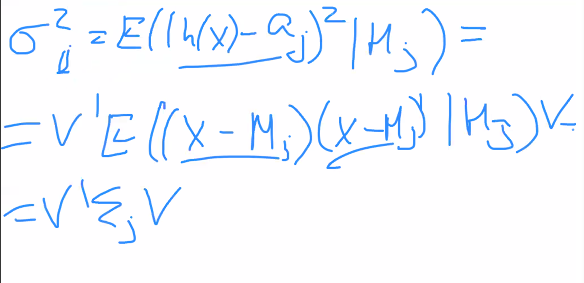 σ²ⱼ = E((h(x) - aⱼ)² | Hⱼ) =
= V' E((x - Mⱼ)(x - Mⱼ)' | Hⱼ) V =
= V' Σⱼ V